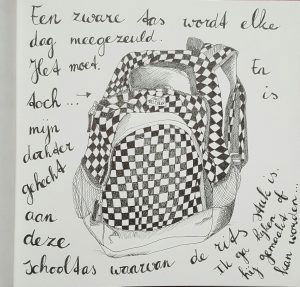 Een zware tas wordt elke
dag meegezeuld.
Het moet. En
toch... is
mijn
dochter
gehecht
aan
deze
schooltas waarvan de rits stuk is.
Ik ga kijken of
hij gemaakt
kan worden...